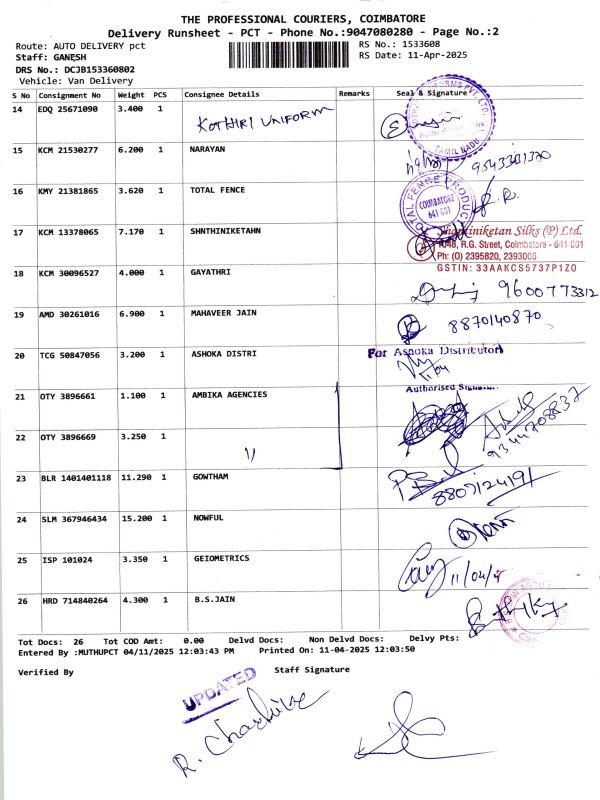 THE PROFESSIONAL COURIERS, COIMBATORE
Delivery Runsheet - PCT - Phone No.:9047080280 - Page No.:2
Route: AUTO DELIVERY pct RS No.: 1533608
Staff: GANESH RS Date: 11-Apr-2025
DRS No.: DCJB153360802
Vehicle: Van Delivery
S No Consignment No Weight PCS Consignee Details Remarks Seal & Signature
14 EDQ 25671090 3.400 1 KOTHIRI UNIFORM
TAMIL NADU
15 KCM 21530277 6.200 1 NARAYAN
16 KMY 21381865 3.620 1 TOTAL FENCE
TOTAL FENCE PRODUCT
COIMBATORE
641 001
17 KCM 13378065 7.170 1 SHNTHINIKETAHN
Shanthiniketan Silks (P) Ltd.
1048, R.G. Street, Coimbatore - 641 001
Ph: (O) 2395820, 2393006
GSTIN: 33AAKCS5737P1Z0
18 KCM 30096527 4.000 1 GAYATHRI
9600773312
19 AMD 30261016 6.900 1 MAHAVEER JAIN
8870140870
20 TCG 50847056 3.200 1 ASHOKA DISTRI
For Ashoka Distributors
21 OTY 3896661 1.100 1 AMBIKA AGENCIES
Authorised
9344708837
22 OTY 3896669 3.250 1 "
23 BLR 1401401118 11.290 1 GOWTHAM
8807124191
24 SLM 367946434 15.200 1 NOWFUL
25 ISP 101024 3.350 1 GEIOMETRICS
11/04/
26 HRD 714840264 4.300 1 B.S.JAIN
Tot Docs: 26 Tot COD Amt: 0.00 Delvd Docs: Non Delvd Docs: Delvy Pts:
Entered By :MUTHUPCT 04/11/2025 12:03:43 PM Printed On: 11-04-2025 12:03:50
Verified By Staff Signature
UPDATED